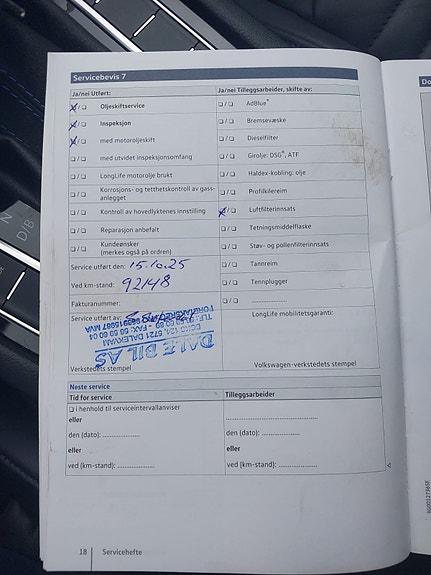 Servicebevis 7
Ja/nei Utført:
Oljeskiftservice
Inspeksjon
med motoroljeskift
med utvidet inspeksjonsomfang
LongLife motorolje brukt
Korrosjons- og tetthetskontroll av gass-
anlegget
Kontroll av hovedlyktenes innstilling
Reparasjon anbefalt
Kundeønsker
(merkes også på ordren)
Service utført den: 15.10.25
Ved km-stand: 92148
Fakturanummer:
Service utført av:
DALE BIL AS
5721 DALEKVAM
Verkstedets stempel
Ja/nei Tilleggsarbeider, skifte av:
AdBlue®
Bremsevæske
Dieselfilter
Girolje: DSG®, ATF
Haldex-kobling: olje
Profilkilereim
Luftfilterinnsats
Tetningsmiddelflaske
Støv- og pollenfilterinnsats
Tannreim
Tennplugger
LongLife mobilitetsgaranti:
Volkswagen-verkstedets stempel
Neste service
Tid for service
i henhold til serviceintervallanviser
eller
den (dato):
eller
ved (km-stand):
Tilleggsarbeider
den (dato):
eller
ved (km-stand):
18 Servicehefte
Do
N
D/B